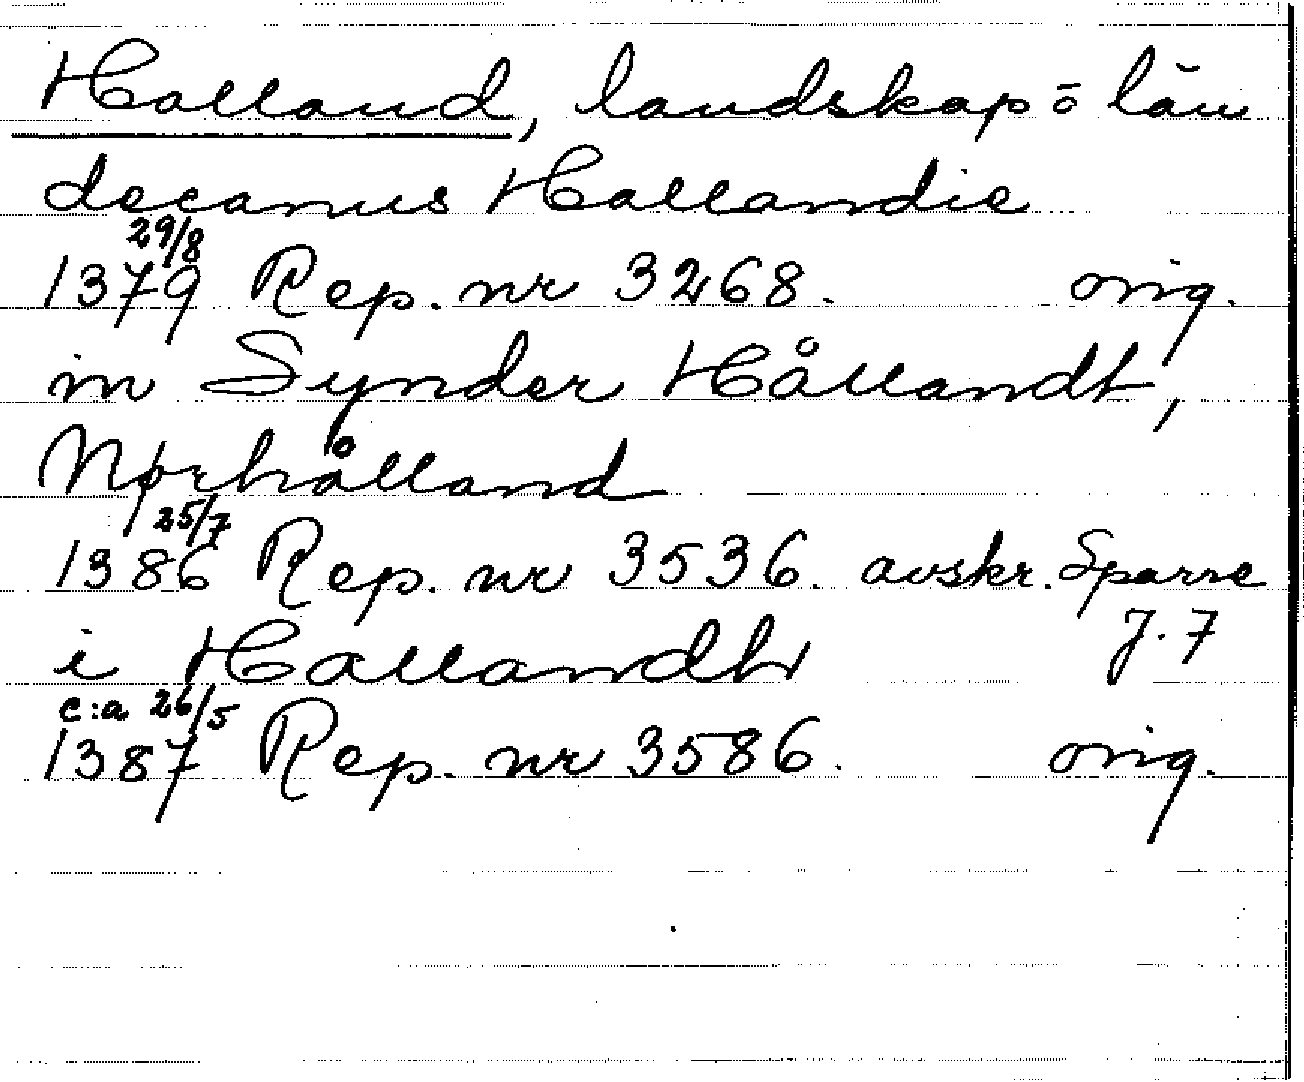 Halland, landskap o län
decanus Hallandie
29/8
1379 Rep. nr 3268. orig.
in Synder Hållandt,
Nørhålland
25/7
1386 Rep. nr 3536. avskr. Sparre
J. 7
i Hallandh
c:a 26/5
1387 Rep. nr 3586. orig.